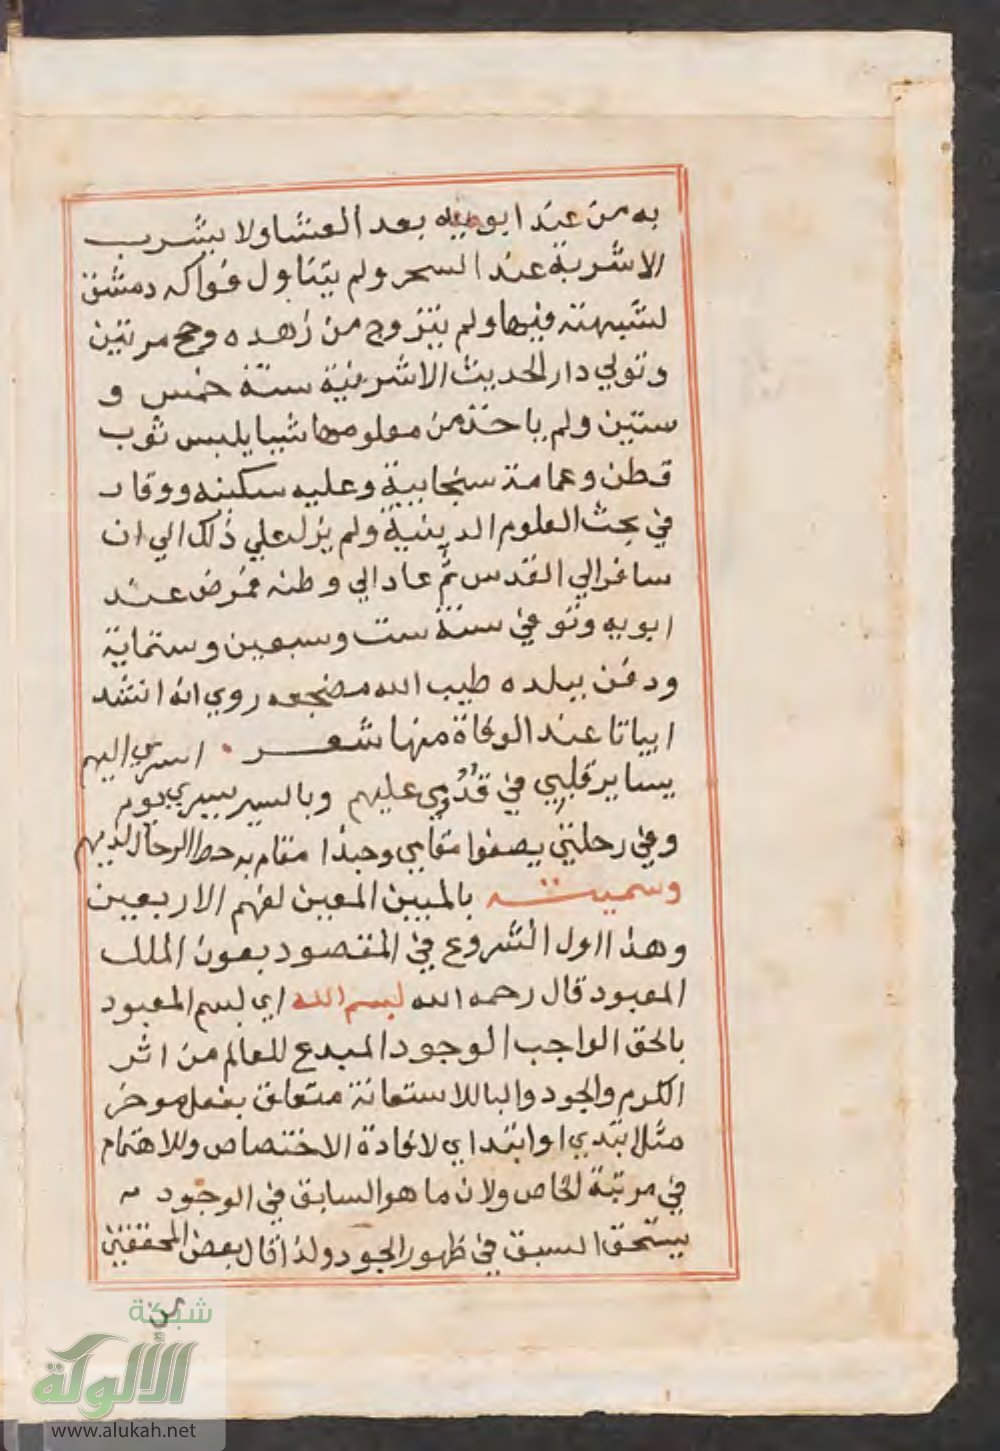 به من عند ابويه بعد العشاولا يشرب
الاشربة عند السحر ولم يتناول فواكه دمشق
لشبهته فيها ولم يتزوج من زهده وحج مرتين
وتولي دار الحديث الاشرفية سنة خمس و
ستين ولم ياخذ من معلومها شييا يلبس ثوب
قطن وعمامة سنجابية وعليه سكينه ووقار
في بحث العلوم الدينية ولم يزل علي ذلك الي ان
سافر الي القدس ثم عاد الي وطنه فمرض عند
ابويه وتوفي سنة ست وسبعين وستماية
ودفن ببلده طيب الله مضجعه روي انه انشد
ابياتا عند الوفاة منها شعر اسري اليهم
بساير قلبي في قدومي عليهم وبالسير سيري يوم
وفي رحلتي يصفوا مقامي وحبذا مقام به حط الرحال لديهم
وسميته بالمبين المعين لفهم الاربعين
وهذا اول الشروع في المقصود بعون الملك
المعبود قال رحمه الله بسم الله اي بسم المعبود
بالحق الواجب الوجود المبدع للعالم من اثر
الكرم والجود والبا للاستعانة متعلق بفعل موخر
مثل ابتدي او ابتداي لافادة الاختصاص وللاهتمام
في مرتبة الخاص ولان ما هو السابق في الوجود
يستحق السبق في ظهور الجود ولذا قال بعض المحققين
من
شبكة
الألوكة
www.alukah.net